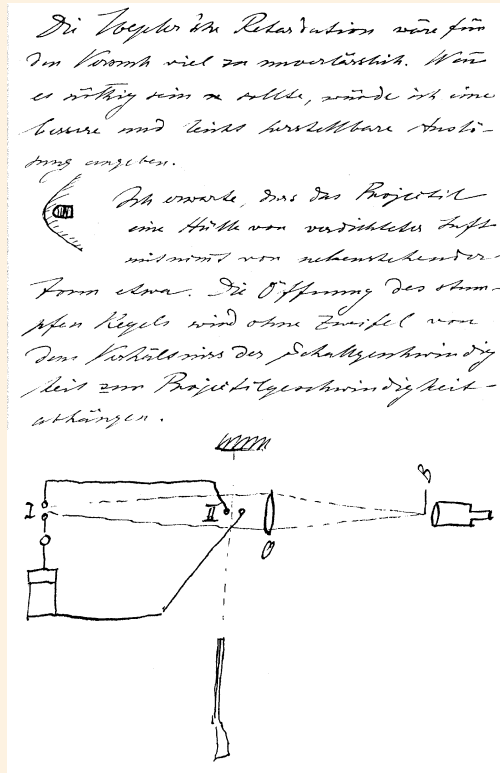 Die Toepler'sche Retardation wäre für
den Versuch viel zu unverlässlich. Wenn
es nöthig sein sollte, würde ich eine
bessere und leicht herstellbare Auslö-
sung angeben.
Ich erwarte, dass das Projectil
eine Hülle von verdichteter Luft
mitnimmt von nebenstehender
Form etwa. Die Öffnung des stum-
pfen Kegels wird ohne Zweifel von
dem Verhältniss der Schallgeschwindig
keit zur Projectilgeschwindigkeit
abhängen.
B
I
II
O